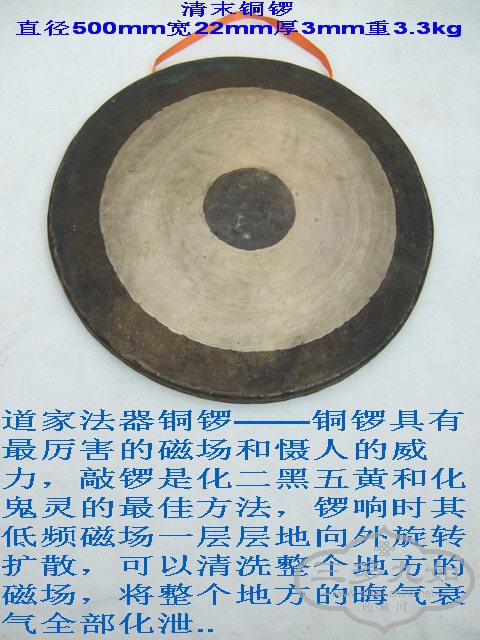 清末铜锣
直径500mm宽22mm厚3mm重3.3kg
道家法器铜锣——铜锣具有
最厉害的磁场和慑人的威
力，敲锣是化二黑五黄和化
鬼灵的最佳方法，锣响时其
低频磁场一层层地向外旋转
扩散，可以清洗整个地方的
磁场，将整个地方的晦气衰
气全部化泄..
收藏网